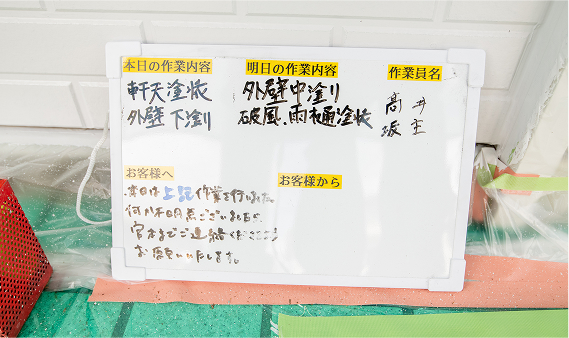 本日の作業内容
軒天塗装
外壁下塗り
明日の作業内容
外壁中塗り
破風、雨樋塗装
作業員名
高井
坂主
お客様へ
本日は上記作業を行いました。
何か不明点ございましたら
宮本までご連絡ください
お願いいたします。
お客様から